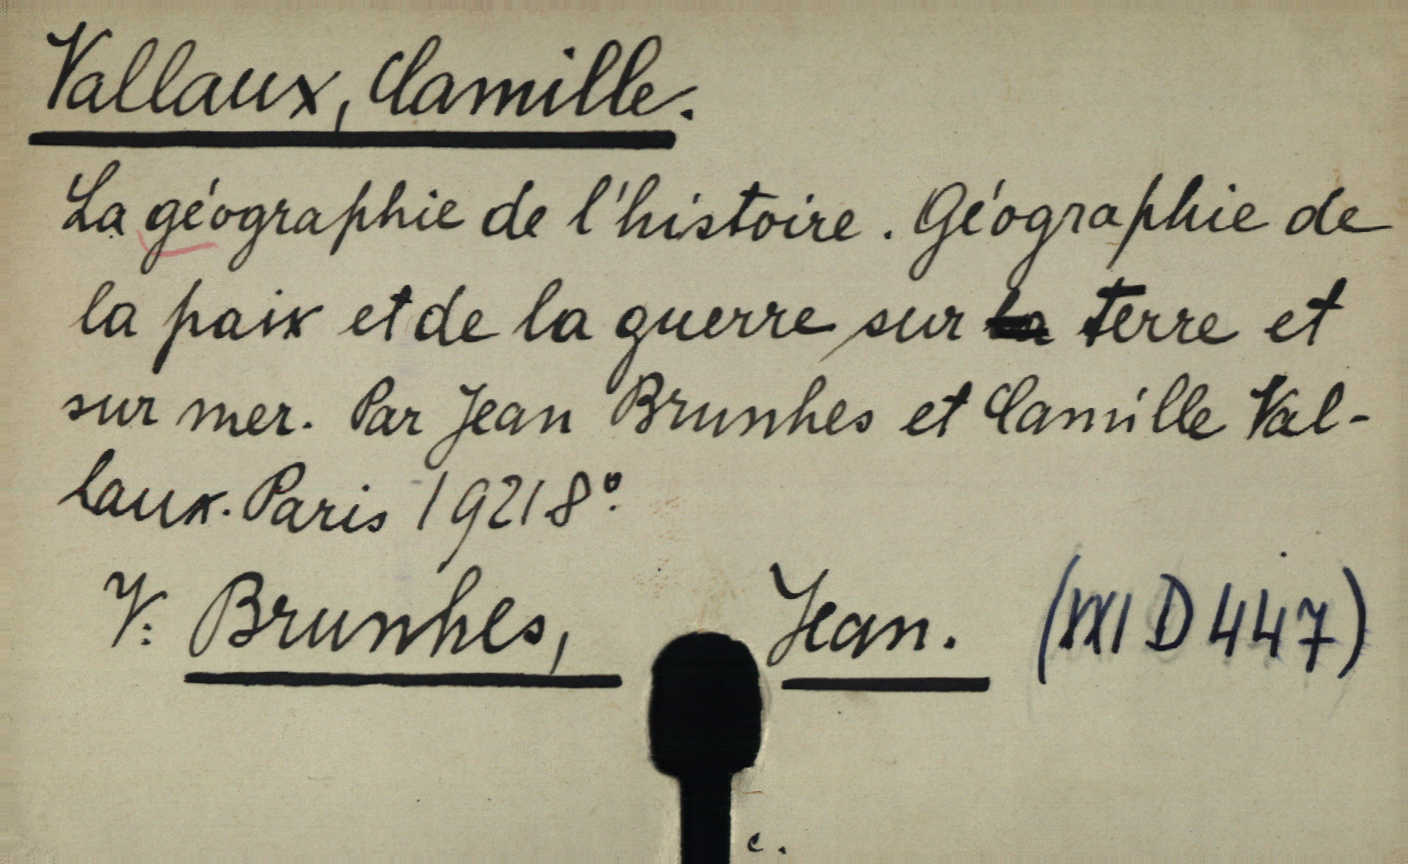 Vallaux, Camille.
La géographie de l'histoire. Géographie de
la paix et de la guerre sur terre et
sur mer. Par Jean Brunhes et Camille Val-
laux. Paris 1921 8º.
V: Brunhes, Jean. (XXI D 447)
c.